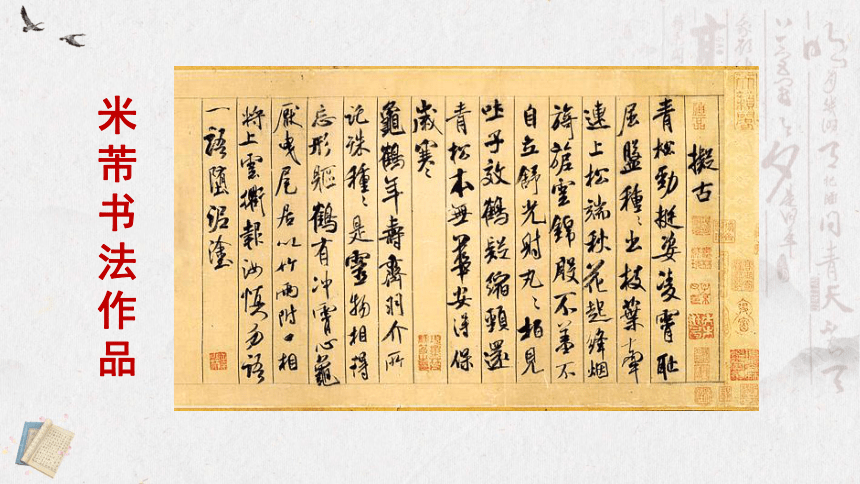 米芾书法作品
擬古
青松勁挺姿凌霄耻
屈盤種〻出枝葉牽
連上松端秋花起絳烟
旖旎雲錦殷不羞不
自立舒光射丸〻柏見
吐子效鶴疑縮頸還
青松本無華安得保
歲寒
龜鶴年壽齊羽介所
託殊種〻是靈物相得
忘形軀鶴有冲霄心龜
厭曳尾居以竹兩附口相
將上雲衢報汝慎勿語
一語墮泥塗